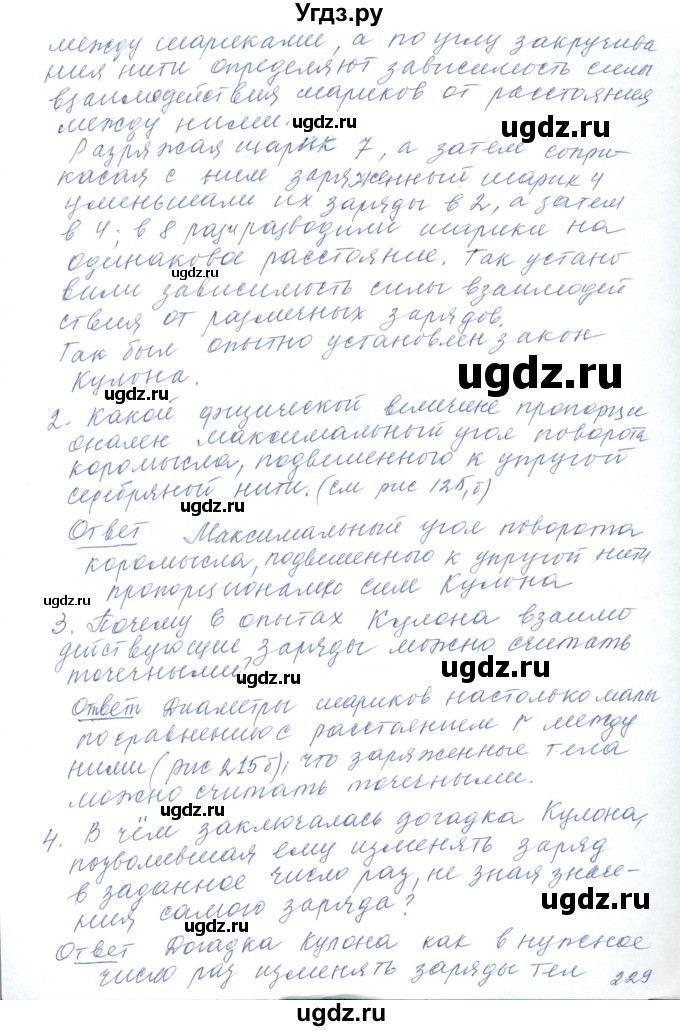 Угдз.ру
между шариками, а по углу закручива
ния нити определяют зависимость силы
взаимодействия шариков от расстояния
между ними.
Разряжая шарик 7, а затем сопри-
касая с ним заряженный шарик 4
уменьшали их заряды в 2, а затем
в 4; в 8 раз разводили шарики на
одинаковое расстояние. Так устано
ugdz.ru
вили зависимость силы взаимодей
ствия от различных зарядов.
Так был опытно установлен закон
ugdz.ru
Кулона.
ugdz.ru
2. Какой физической величине пропорци
онален максимальный угол поворота
коромысла, подвешенного к упругой
серебряной нити. (см рис 125,б)
ugdz.ru
Ответ Максимальный угол поворота
коромысла, подвешенного к упругой нити
пропорционален силе Кулона
ugdz.ru
3. Почему в опытах Кулона взаимо
действующие заряды можно считать
точечными?
ugdz.ru
ugdz.ru
Ответ Диаметры шариков настолько малы
по сравнению с расстоянием r между
ними (рис 215б), что заряженные тела
можно считать точечными.
ugdz.ru
4. В чём заключалась догадка Кулона,
позволившая ему изменять заряд
в заданное число раз, не зная значе-
ugdz.ru
ния самого заряда?
ugdz.ru
Ответ Догадка Кулона как в нужное
число раз изменять заряды тел
229
ugdz.ru